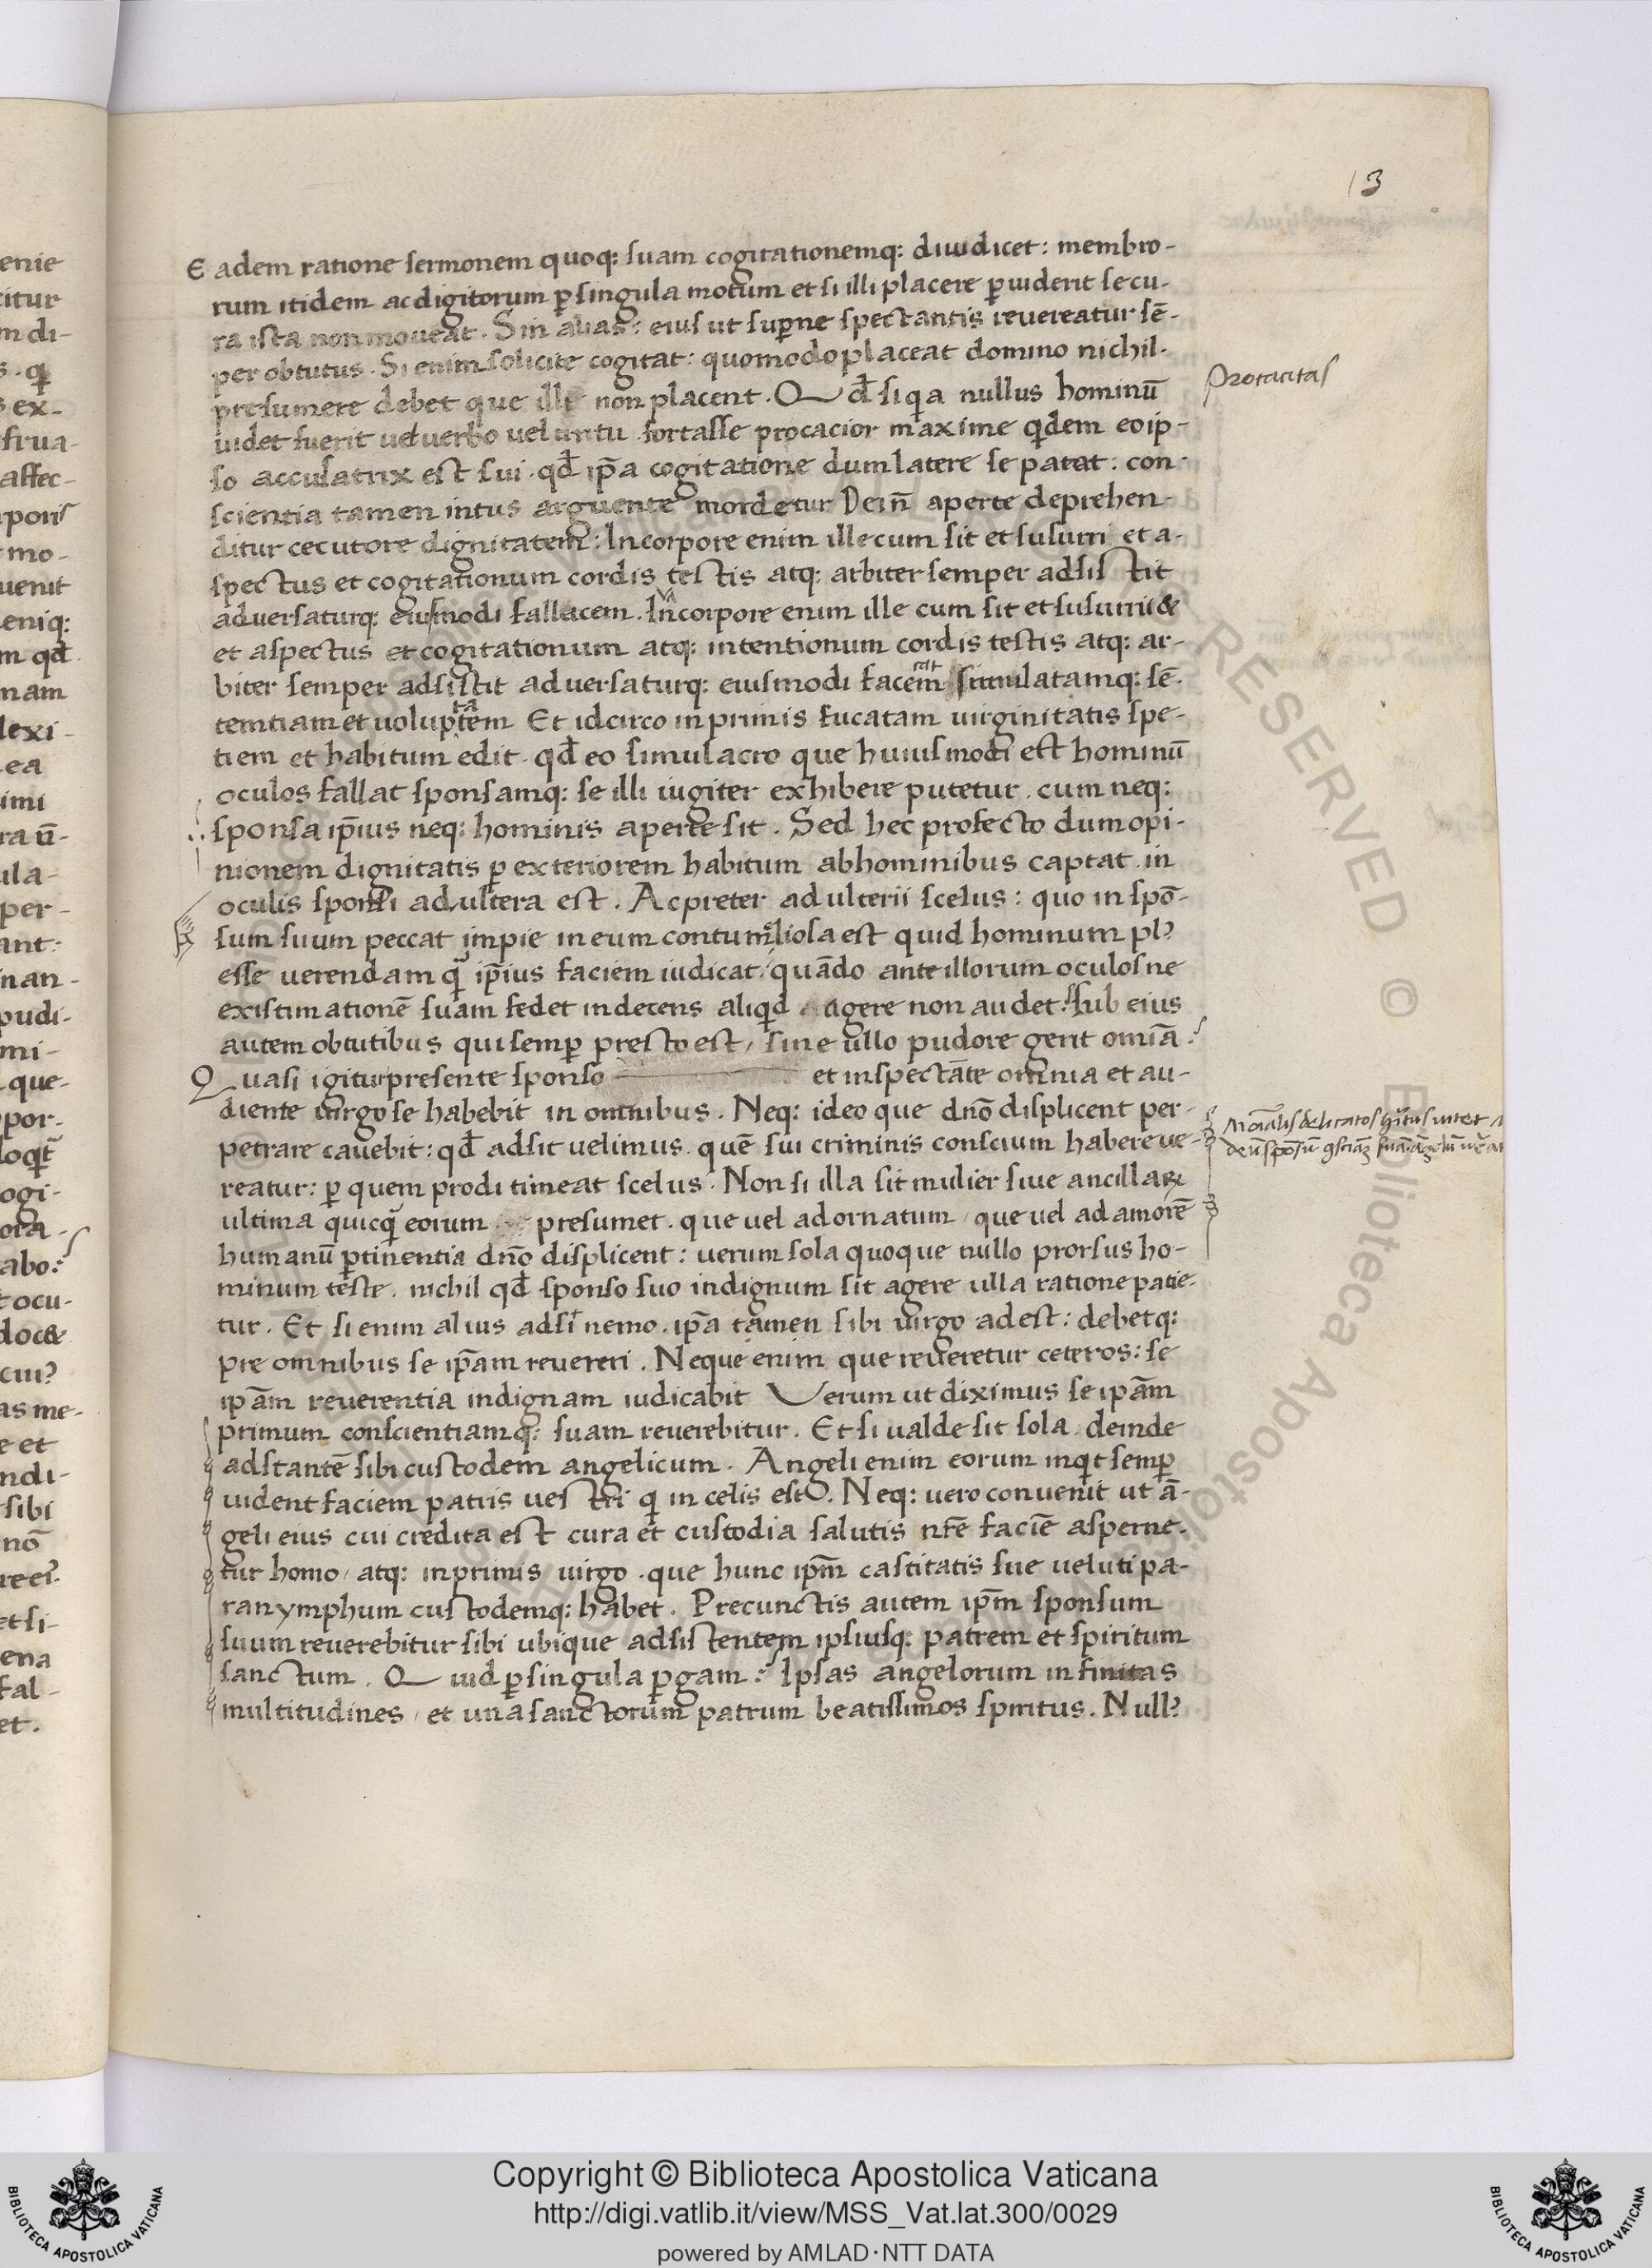 13
Eadem ratione sermonem quoq: suam cogitationemq: diiudicet: membro-
rum itidem ac digitorum p̱ singula motum et si illi placere p̱uiderit secu-
ra ista non moueat. Sin alias: eius ut sup̱ne spectantis reuereatur sē-
per obtutus. Si enim solicite cogitat: quomodo placeat domino nichil.
presumere debet que ille non placent. Qđ si qͥa nullus hominū
Procacitas
uidet fuerit uel uerbo uel nutu fortasse procacior maxime qͥdem eo ip-
so accusatrix est sui. qđ ip̄a cogitatione dum latere se putat: con-
scientia tamen intus arguente mordetur Dein̄ aperte deprehen-
ditur cecutore dignitatem: Incorpore enim ille cum sit et susurri et a-
spectus et cogitationum cordis testis atq: arbiter semper adsistit
aduersaturq: eiusmodi fallacem. Incorpore enim ille cum sit et susurrii &
et aspectus et cogitationum atq: intentionum cordis testis atq: ar-
biter semper adsistit aduersaturq: eiusmodi facem simulatamq: sē-
temtiam et voluptatem Et idcirco inprimis fucatam uirginitatis spe-
tiem et habitum edit. qđ eo simulacro que huiusmodi est hominū
oculos fallat sponsamq: se illi iugiter exhibere putetur. cum neq:
sponsa ip̄ius neq: hominis aperte sit. Sed hec profecto dum opi-
nionem dignitatis p̱ exteriorem habitum ab hominibus captat in
oculis sponsi adultera est. Ac preter adulterii scelus: quo in spō-
sum suum peccat impie in eum contumeliosa est quid hominum plꝰ
esse uerendam qͣ̄ ip̄ius faciem iudicat. quādo ante illorum oculos ne
existimationē suam fedet indecens aliqͥd agere non audet: sub eius
autem obtutibus qui semp̱ presto est, sine ullo pudore gerit omīa.
Quasi igitur presente sponso et inspectāte omnia et au-
diente uirgo se habebit in omnibus. Neq: ideo que dn̄o displicent per-
petrare cauebit: qđ adsit uelimus. quē sui criminis conscium habere ue-
reatur: p̱ quem prodi timeat scelus. Non si illa sit mulier siue ancillaꝝ
ultima quicqͣ̄ eorum presumet. que uel ad ornatum, que uel ad amorē
humanū p̱tinentia dn̄o displicent: uerum sola quoque nullo prorsus ho-
minum teste. nichil qđ sponso suo indignum sit agere ulla ratione patie-
tur. Et si enim alius adsit nemo. ip̄a tamen sibi uirgo adest: debetq:
pre omnibus se ip̄am reuereri. Neque enim que reueretur ceteros: se
ip̄am reuerentia indignam iudicabit Verum ut diximus se ip̄am
primum conscientiamq: suam reuerebitur. Et si ualde sit sola. deinde
adstantē sibi custodem angelicum. Angeli enim eorum inqͥt semp̱
uident faciem patris uestri qͥ in celis est. Neq: uero conuenit ut ā-
geli eius cui credita est cura et custodia salutis nr̄e faciē asperne-
tur homo, atq: inprimis uirgo. que hunc ip̄m castitatis sue ueluti pa-
ranymphum custodemq: habet. Precunctis autem ip̄m sponsum
suum reuerebitur sibi ubique adsistentem ipsiusq: patrem et spiritum
sanctum. Quid p̱ singula p̱gam? Ipsas angelorum infinitas
multitudines, et una sanctorum patrum beatissimos spiritus. Nullꝰ
Copyright © Biblioteca Apostolica Vaticana
http://digi.vatlib.it/view/MSS_Vat.lat.300/0029
powered by AMLAD·NTT DATA
BIBLIOTECA APOSTOLICA VATICANA
BIBLIOTECA APOSTOLICA VATICANA